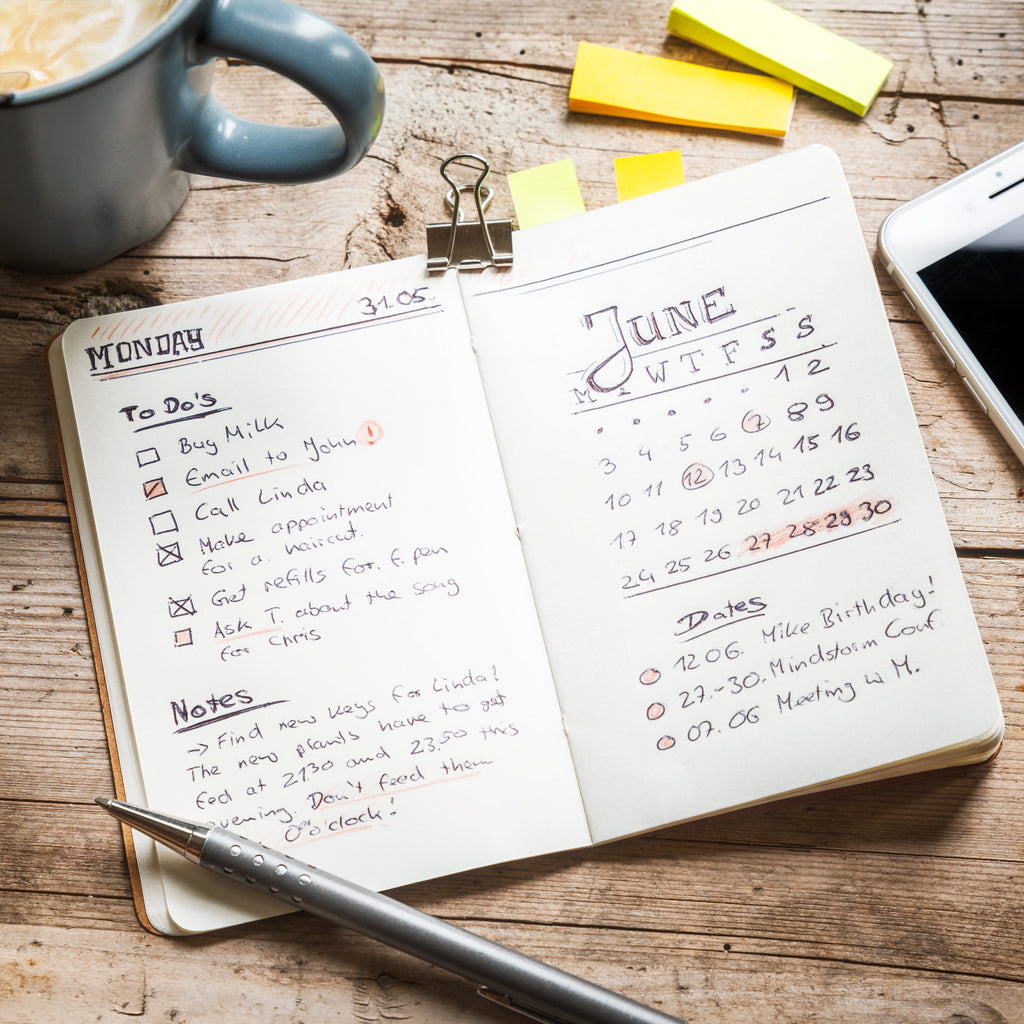 MONDAY 31.05.
To Do's
Buy Milk
Email to John !
Call Linda
Make appointment
for a haircut.
Get refills for f. pen
Ask T. about the song
for Chris
Notes
→ Find new keys for Linda!
The new plants have to get
fed at 21:30 and 23:50 this
evening. Don't feed them
o'clock!
JUNE
M T W T F S S
1 2
3 4 5 6 7 8 9
10 11 12 13 14 15 16
17 18 19 20 21 22 23
24 25 26 27 28 29 30
Dates
12 06. Mike Birthday!
27.-30. Mindstorm Conf.
07. 06 Meeting w M.